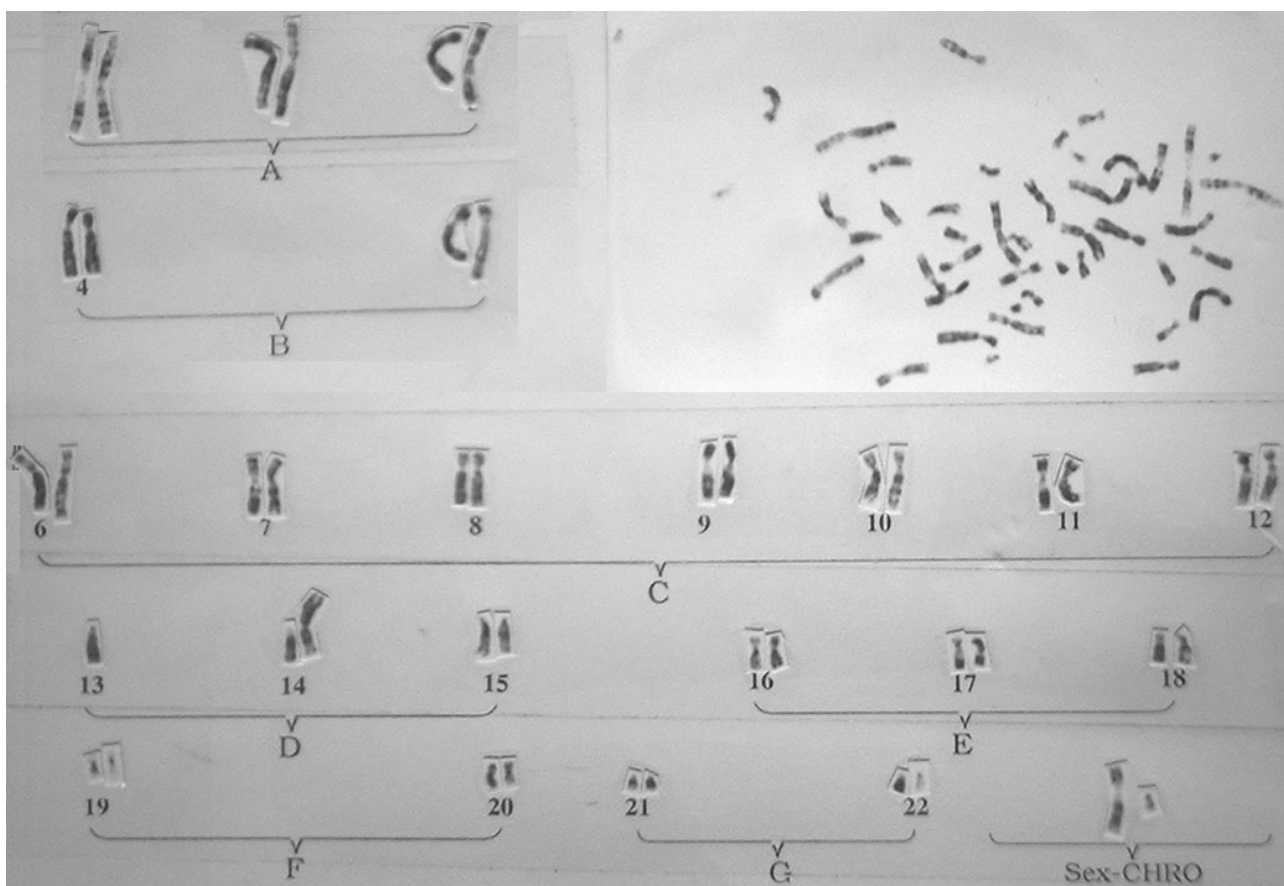 A
4
B
6 7 8 9 10 11 12
C
13 14 15 16 17 18
D E
19 20 21 22
F G Sex-CHRO